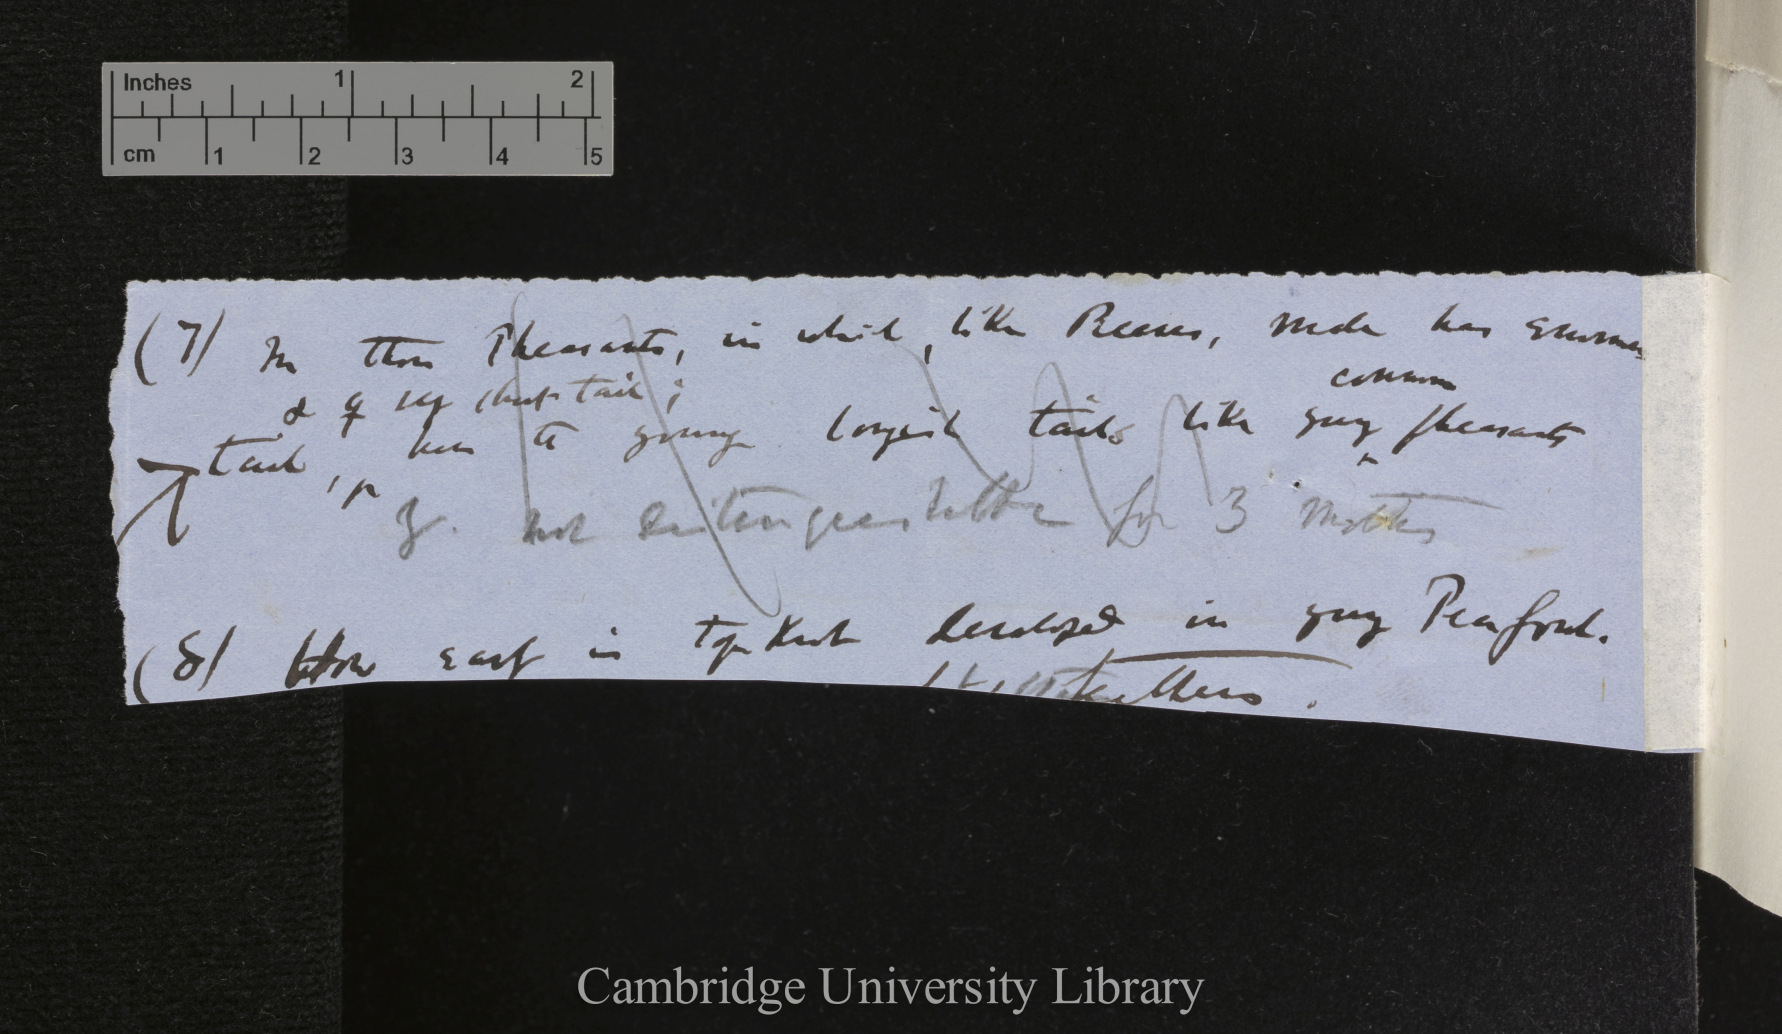 Inches 1 2
cm 1 2 3 4 5
(7) In those Pheasants, in which, like Reeves, male has enormous
& ♀ very short tail;
common
tail, have the young longish tails like young pheasants
y. not distinguishable for 3 months
(8) How early is top Knot developed in young Peafowl.
Cambridge University Library